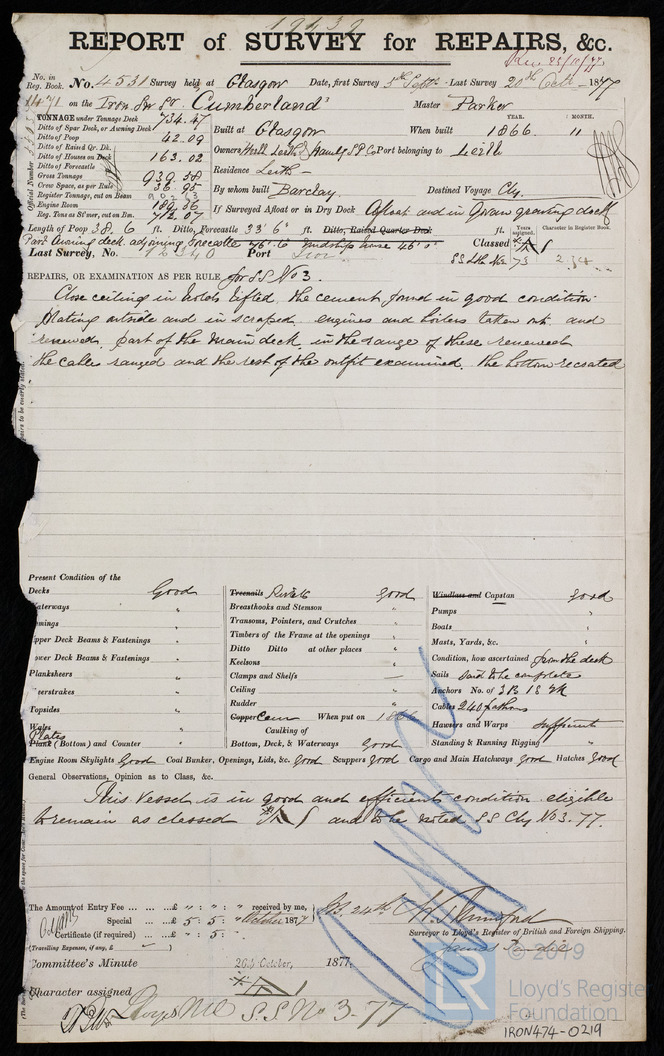 19439
REPORT of SURVEY for REPAIRS, &c.
No. in Reg. Book. No. 4531 Survey held at Glasgow Date, first Survey 5th Septr Last Survey 20th Octr 1877
1471 on the Iron Sr Sr. Cumberland Master Parker
TONNAGE under Tonnage Deck 734.47
Ditto of Spar Deck, or Awning Deck
Ditto of Poop 42.09
Ditto of Raised Qr. Dk.
Ditto of Houses on Deck 163.02
Ditto of Forecastle
Gross Tonnage 939.58
Crew Space, as per Rule 36.95
Register Tonnage, cut on Beam
Engine Room 189.56
Reg. Tons as St'mer, cut on Bm. 712.07
Official Number
YEAR. MONTH.
Built at Glasgow When built 1866. 11
Owners Leith S.P. Co Port belonging to Leith
Residence Leith
By whom built Barclay. Destined Voyage Clg.
If Surveyed Afloat or in Dry Dock Afloat and in Govan graving dock
Length of Poop 38.6 ft. Ditto, Forecastle 33'6" ft. Ditto, Raised Quarter Deck ft.
Part Awning deck adjoining forecastle 76' to midship house 46'0"
Years assigned. Character in Register Book.
Classed A 1
Last Survey, No. Port
REPAIRS, OR EXAMINATION AS PER RULE for S.S. No 3.
Close ceiling in holds lifted, the cement found in good condition.
Plating outside and in scraped. engines and boilers taken out and
renewed. part of the main deck in the range of these renewed
the cables ranged and the rest of the outfit examined. the bottom recoated
Present Condition of the
Decks Good
Waterways "
Upper Deck Beams & Fastenings "
Lower Deck Beams & Fastenings "
Planksheers "
Topsides "
Wales "
Plates
Plank (Bottom) and Counter "
Treenails Rivets good
Breasthooks and Stemson "
Transoms, Pointers, and Crutches "
Timbers of the Frame at the openings "
Ditto Ditto at other places "
Keelsons "
Clamps and Shelfs —
Ceiling "
Rudder "
Copper Cem When put on 1866
Caulking of
Bottom, Deck, & Waterways Good
Windlass and Capstan good
Pumps "
Boats "
Masts, Yards, &c. "
Condition, how ascertained from the deck
Sails Said to be complete
Anchors No. of 3B 1S 2K
Cables 240 fathoms
Hawsers and Warps sufficient
Standing & Running Rigging "
Engine Room Skylights Good Coal Bunker, Openings, Lids, &c. good Scuppers Good Cargo and Main Hatchways Good Hatches Good
General Observations, Opinion as to Class, &c.
This Vessel is in good and efficient condition eligible
to remain as classed A 1 and to be noted S S Clg No 3-77.
The Amount of Entry Fee ... ... ...£ " : " : " received by me,
Special ... ...£ 5 : 5 : " October 1877
Certificate (if required) ... ...£ " : 5 : "
(Travelling Expenses, if any, £ )
Surveyor to Lloyd's Register of British and Foreign Shipping.
Committee's Minute 26th October, 1877.
Character assigned A 1
Lloyds MC S.S. No 3-77
© 2019
LR
Lloyd's Register
Foundation
IRON474-0219